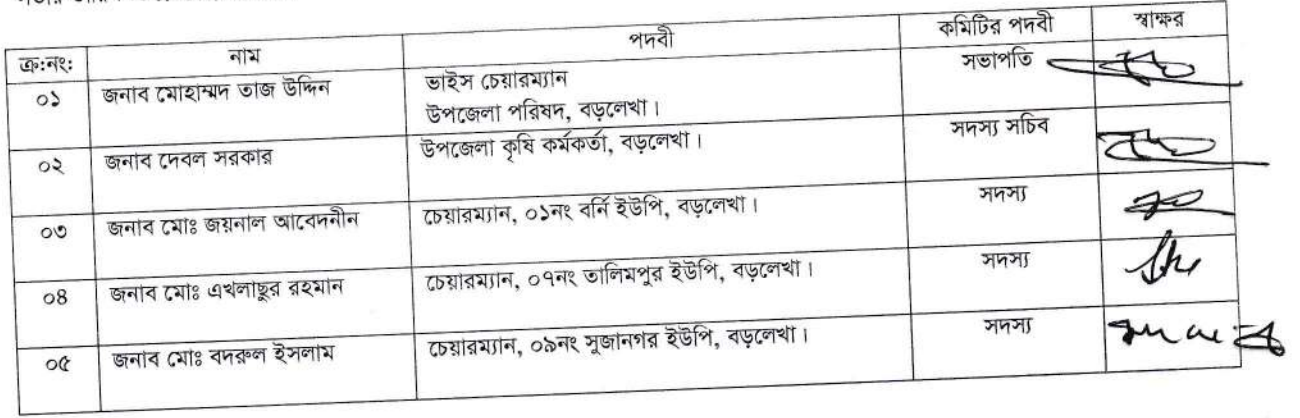 ক্র:নং: নাম পদবী কমিটির পদবী স্বাক্ষর
০১ জনাব মোহাম্মদ তাজ উদ্দিন ভাইস চেয়ারম্যান সভাপতি
উপজেলা পরিষদ, বড়লেখা।
০২ জনাব দেবল সরকার উপজেলা কৃষি কর্মকর্তা, বড়লেখা। সদস্য সচিব
০৩ জনাব মোঃ জয়নাল আবেদনীন চেয়ারম্যান, ০১নং বর্নি ইউপি, বড়লেখা। সদস্য
০৪ জনাব মোঃ এখলাছুর রহমান চেয়ারম্যান, ০৭নং তালিমপুর ইউপি, বড়লেখা। সদস্য
০৫ জনাব মোঃ বদরুল ইসলাম চেয়ারম্যান, ০৯নং সুজানগর ইউপি, বড়লেখা। সদস্য